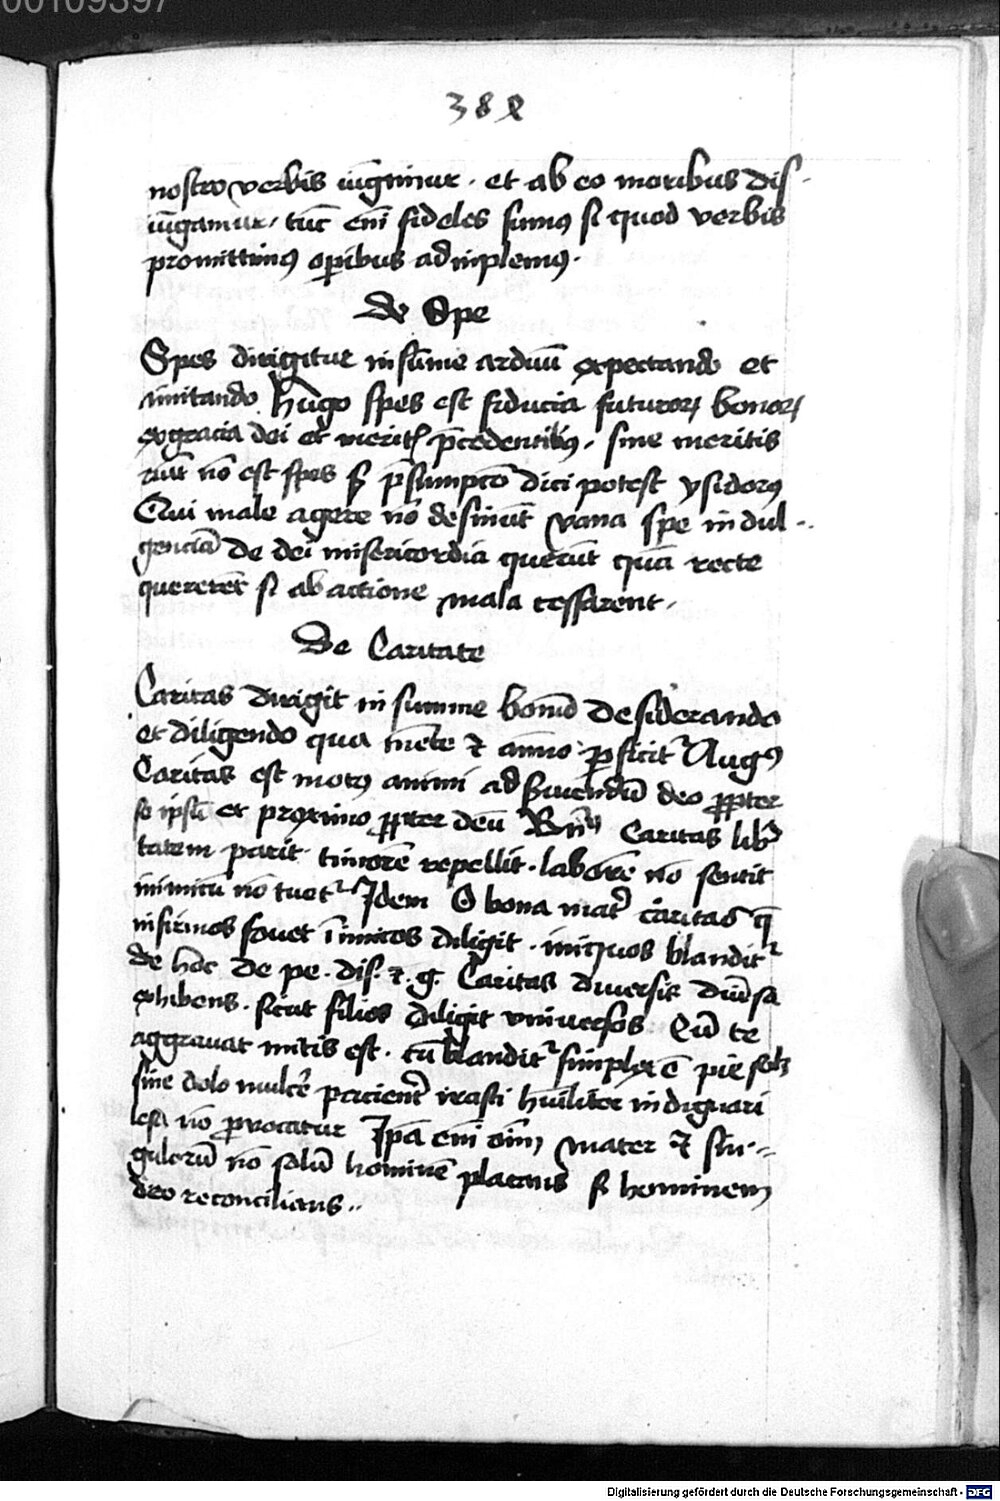 00109397
388
nostro verbis iūgimur . et ab eo moribus dis-
iūgamur . tūc em̄ fideles sumꝰ si quod verbis
promittimꝰ oꝑibus adimplemꝰ .
de Spe
Spes dirigitur in sūme arduū expectando et
imitando hugo spes est fiducia futuroꝝ bonoꝝ
ex gracia dei et meritꝭ p̄cedentibꝰ . sine meritis
nō est spes sꝫ p̄sumpcō dici potest ysidorꝰ
Qui male agere nō desinūt vana spe indul-
genciā de dei misericordia querūt quā recte
quererēt si ab actione mala cessarent .
De Caritate
Caritas dirigit in summe bonū desiderando
et diligendo qua mēte ⁊ animo ꝑficit᷑ Augꝰ
Caritas est motꝰ animi ad fruendū deo ꝓpter
se ipsū et proximo ꝓpter deū Caritas lib̄
tatem parit timorē repellit . laborē nō sentit
inimicū nō tuet᷑ Idem O bona mat̄ caritas q̄
infirmos fouet īimicos diligit . iniquos blandit᷑
de hoc de pe . dis . 2 . g . Caritas diuersis diūsa
exhibens . sicut filios diligit vniuersos Cū te
aggrauat mitis est . cū blandit᷑ simplex ē pie
sine dolo pacient̄ irasci hūilit̄ indignari
lesa nō ꝓuocatur Ip̄a em̄ oīm mater ⁊ sin-
gulorū nō solū hominē placans sꝫ hominem
deo reconcilians ..
Digitalisierung gefördert durch die Deutsche Forschungsgemeinschaft - DFG